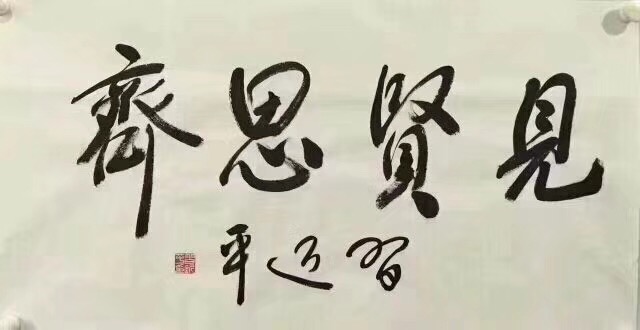 見賢思齊
習近平